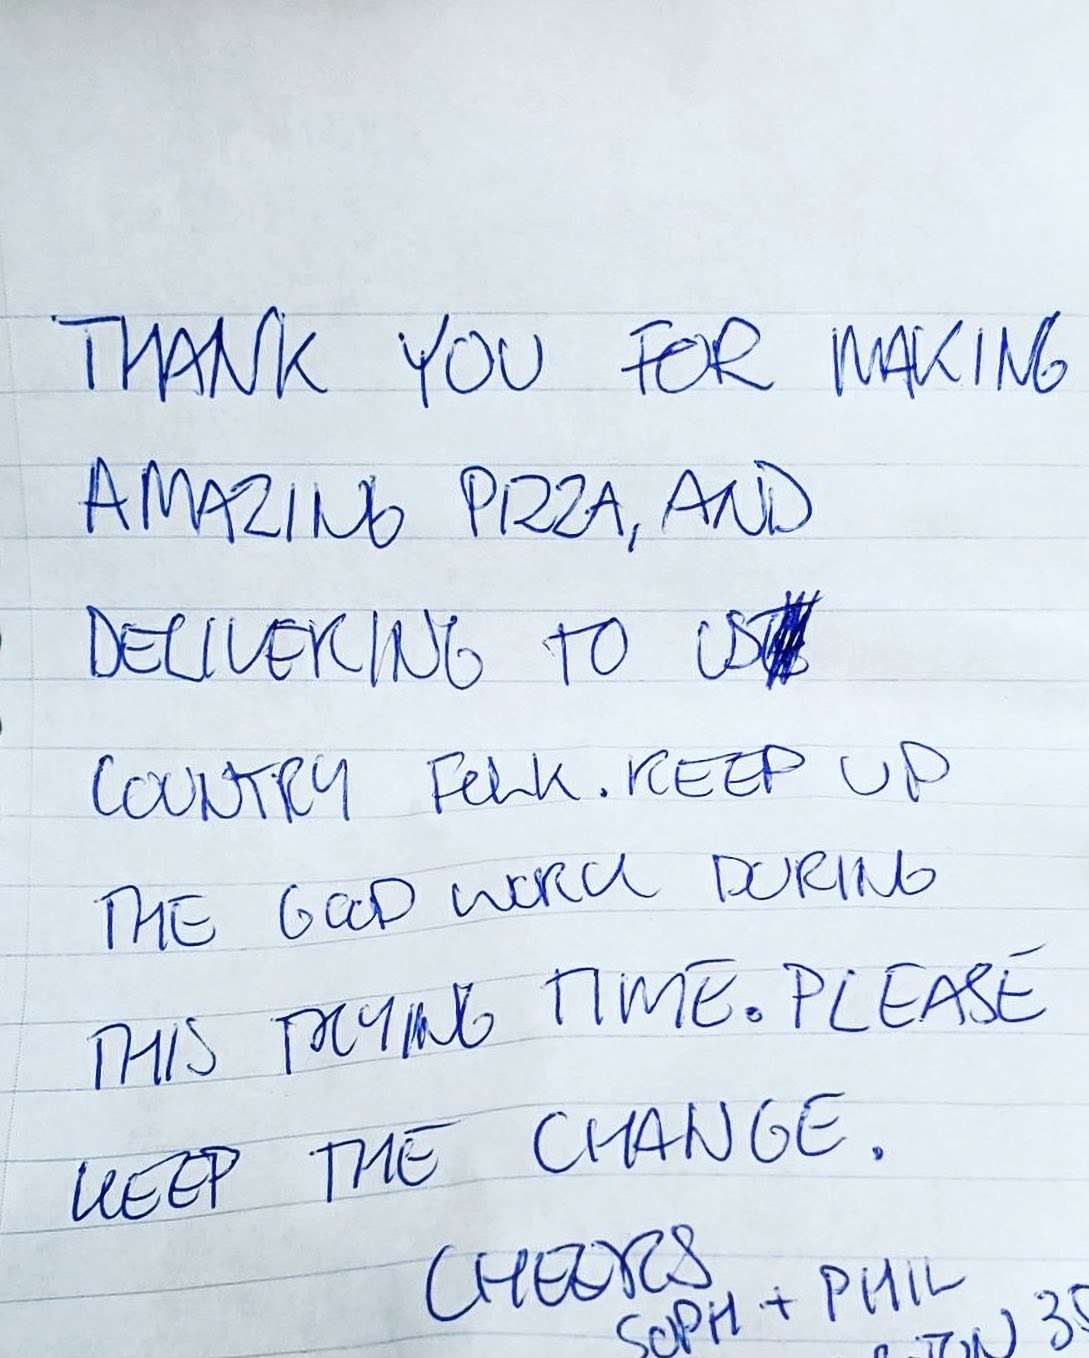 THANK YOU FOR MAKING
AMAZING PIZZA, AND
DELIVERING TO US
COUNTRY FOLK. KEEP UP
THE GOOD WORK DURING
THIS TRYING TIME. PLEASE
KEEP THE CHANGE.
CHEERS
SOPH + PHIL